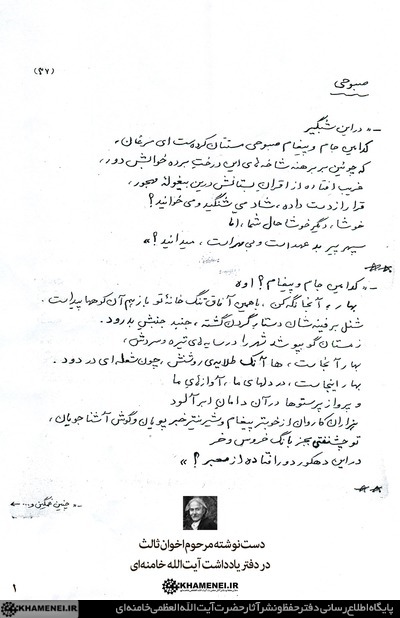 (۴۷)
صبوحی
- « در این شبگیر
کدامین جام و پیغام صبوحی مستتان کرده‌ست ای مرغان،
که چونین بر برهنه شاخه‌های این درخت برده خوابش دور،
غریب افتاده از اقران بستانش درین بیغوله مهجور،
قرار از دست داده، شاد می‌شنگید و می‌خوانید؟
خوشا، دیگر خوشا حال شما، اما
سپهر پیر بد عهد است و بی‌مهر است، می‌دانید؟ »
***
- « کدامین جام و پیغام؟ اوه
بهار، آنجا نگه کن، با همین آفاق تنگ خانهٔ تو باز هم آن کوهها پیداست.
شنل برفینه‌شان دستار گردن گشته، جنبد جنبش بدرود.
زمستان گو بپوشد شهر را در سایه‌های تیره و سردش،
بهار آنجاست، ها آنک طلایه‌ی روشنش، چون شعله‌ای در دود.
بهار اینجاست، در دلهای ما، آوازهای ما
و پرواز پرستوها در آن دامان ابرآلود
هزاران کاروان از خوبتر پیغام و شیرینتر خبر پویان و گوش آشنا جویان،
تو چشنفتی بجز بانگ خروس و خر
در این دهکور دور افتاده از معبر؟ »
***
- « چنین غمگین و... ←
دست‌نوشته مرحوم اخوان ثالث
در دفتر یادداشت آیت‌الله خامنه‌ای
KHAMENEI.IR
۱
KHAMENEI.IR پایگاه اطلاع‌رسانی دفتر حفظ و نشر آثار حضرت آیت‌الله‌العظمی خامنه‌ای